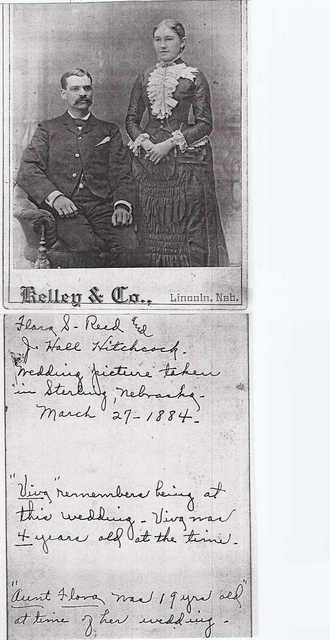 Kelley & Co., Lincoln, Neb.
Flora S. Reed &
J. Hall Hitchcock.
Wedding picture taken
in Sterling, Nebraska.
March 27-1884.
"Viva" remembers being at
this wedding - Viva was
4 years old at the time.
"Aunt Flora was 19 yrs old"
at time of her wedding.